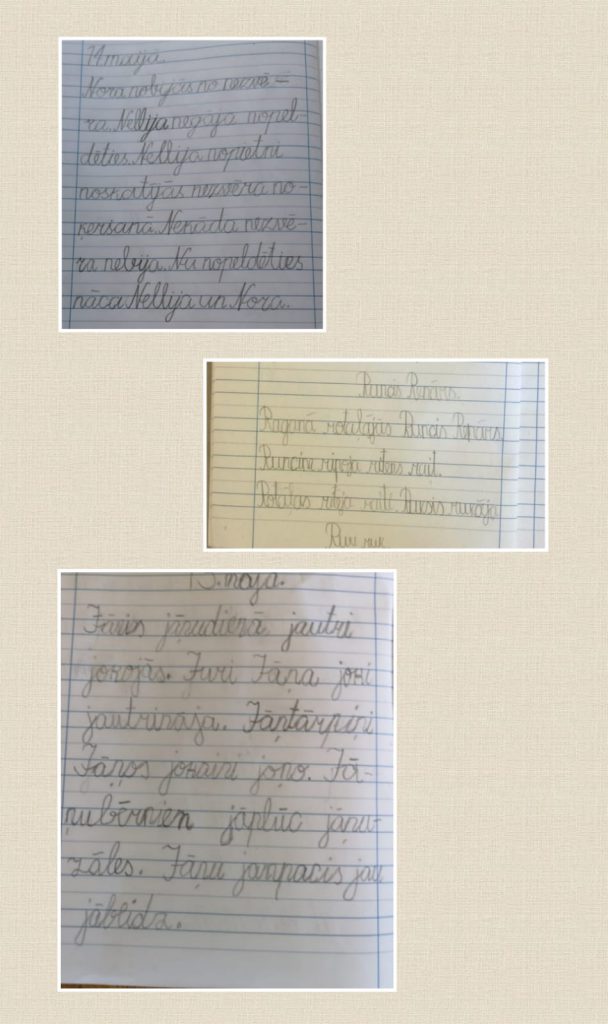 14. maijā.
Nora nobijās no nezvē-
ra. Nellija negāja nopel-
dēties. Nellija nopietni
noskatījās nezvēra no-
ķeršanā. Nekāda nezvē-
ra nebija. Nu nopeldēties
nāca Nellija un Nora.
Runcis Renārs.
Raganā rotaļājās Runcis Renārs.
Runcine ripoja riteņs rait.
Rotaļas ritēja raiti. Ruksis rukāja
Ruu ruk
15. maijā.
Jānis jāņudienā jautri
jokojās. Juri Jāņa joki
jautrināja. Jāņtārpiņi
Jāņos jokaini joņo. Jā-
ņubērniem jāplūc jāņu-
zāles. Jāņu jampacis jau
jāblīdz.